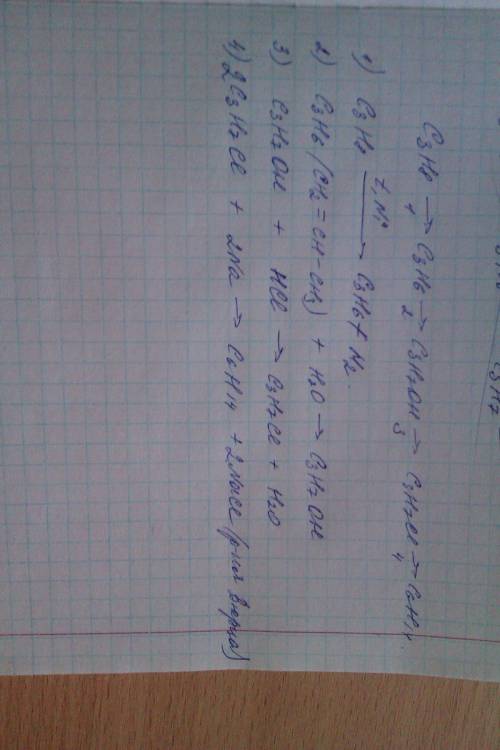 C3H8 → C3H6 → C3H7OH → C3H7Cl → C6H14.
1 2 3 4
1) C3H8 t,Ni → C3H6 + H2.
2) C3H6 (CH2=CH-CH3) + H2O → C3H7OH
3) C3H7OH + HCl → C3H7Cl + H2O
4) 2C3H7Cl + 2Na → C6H14 + 2NaCl (р-ия Вюрца)